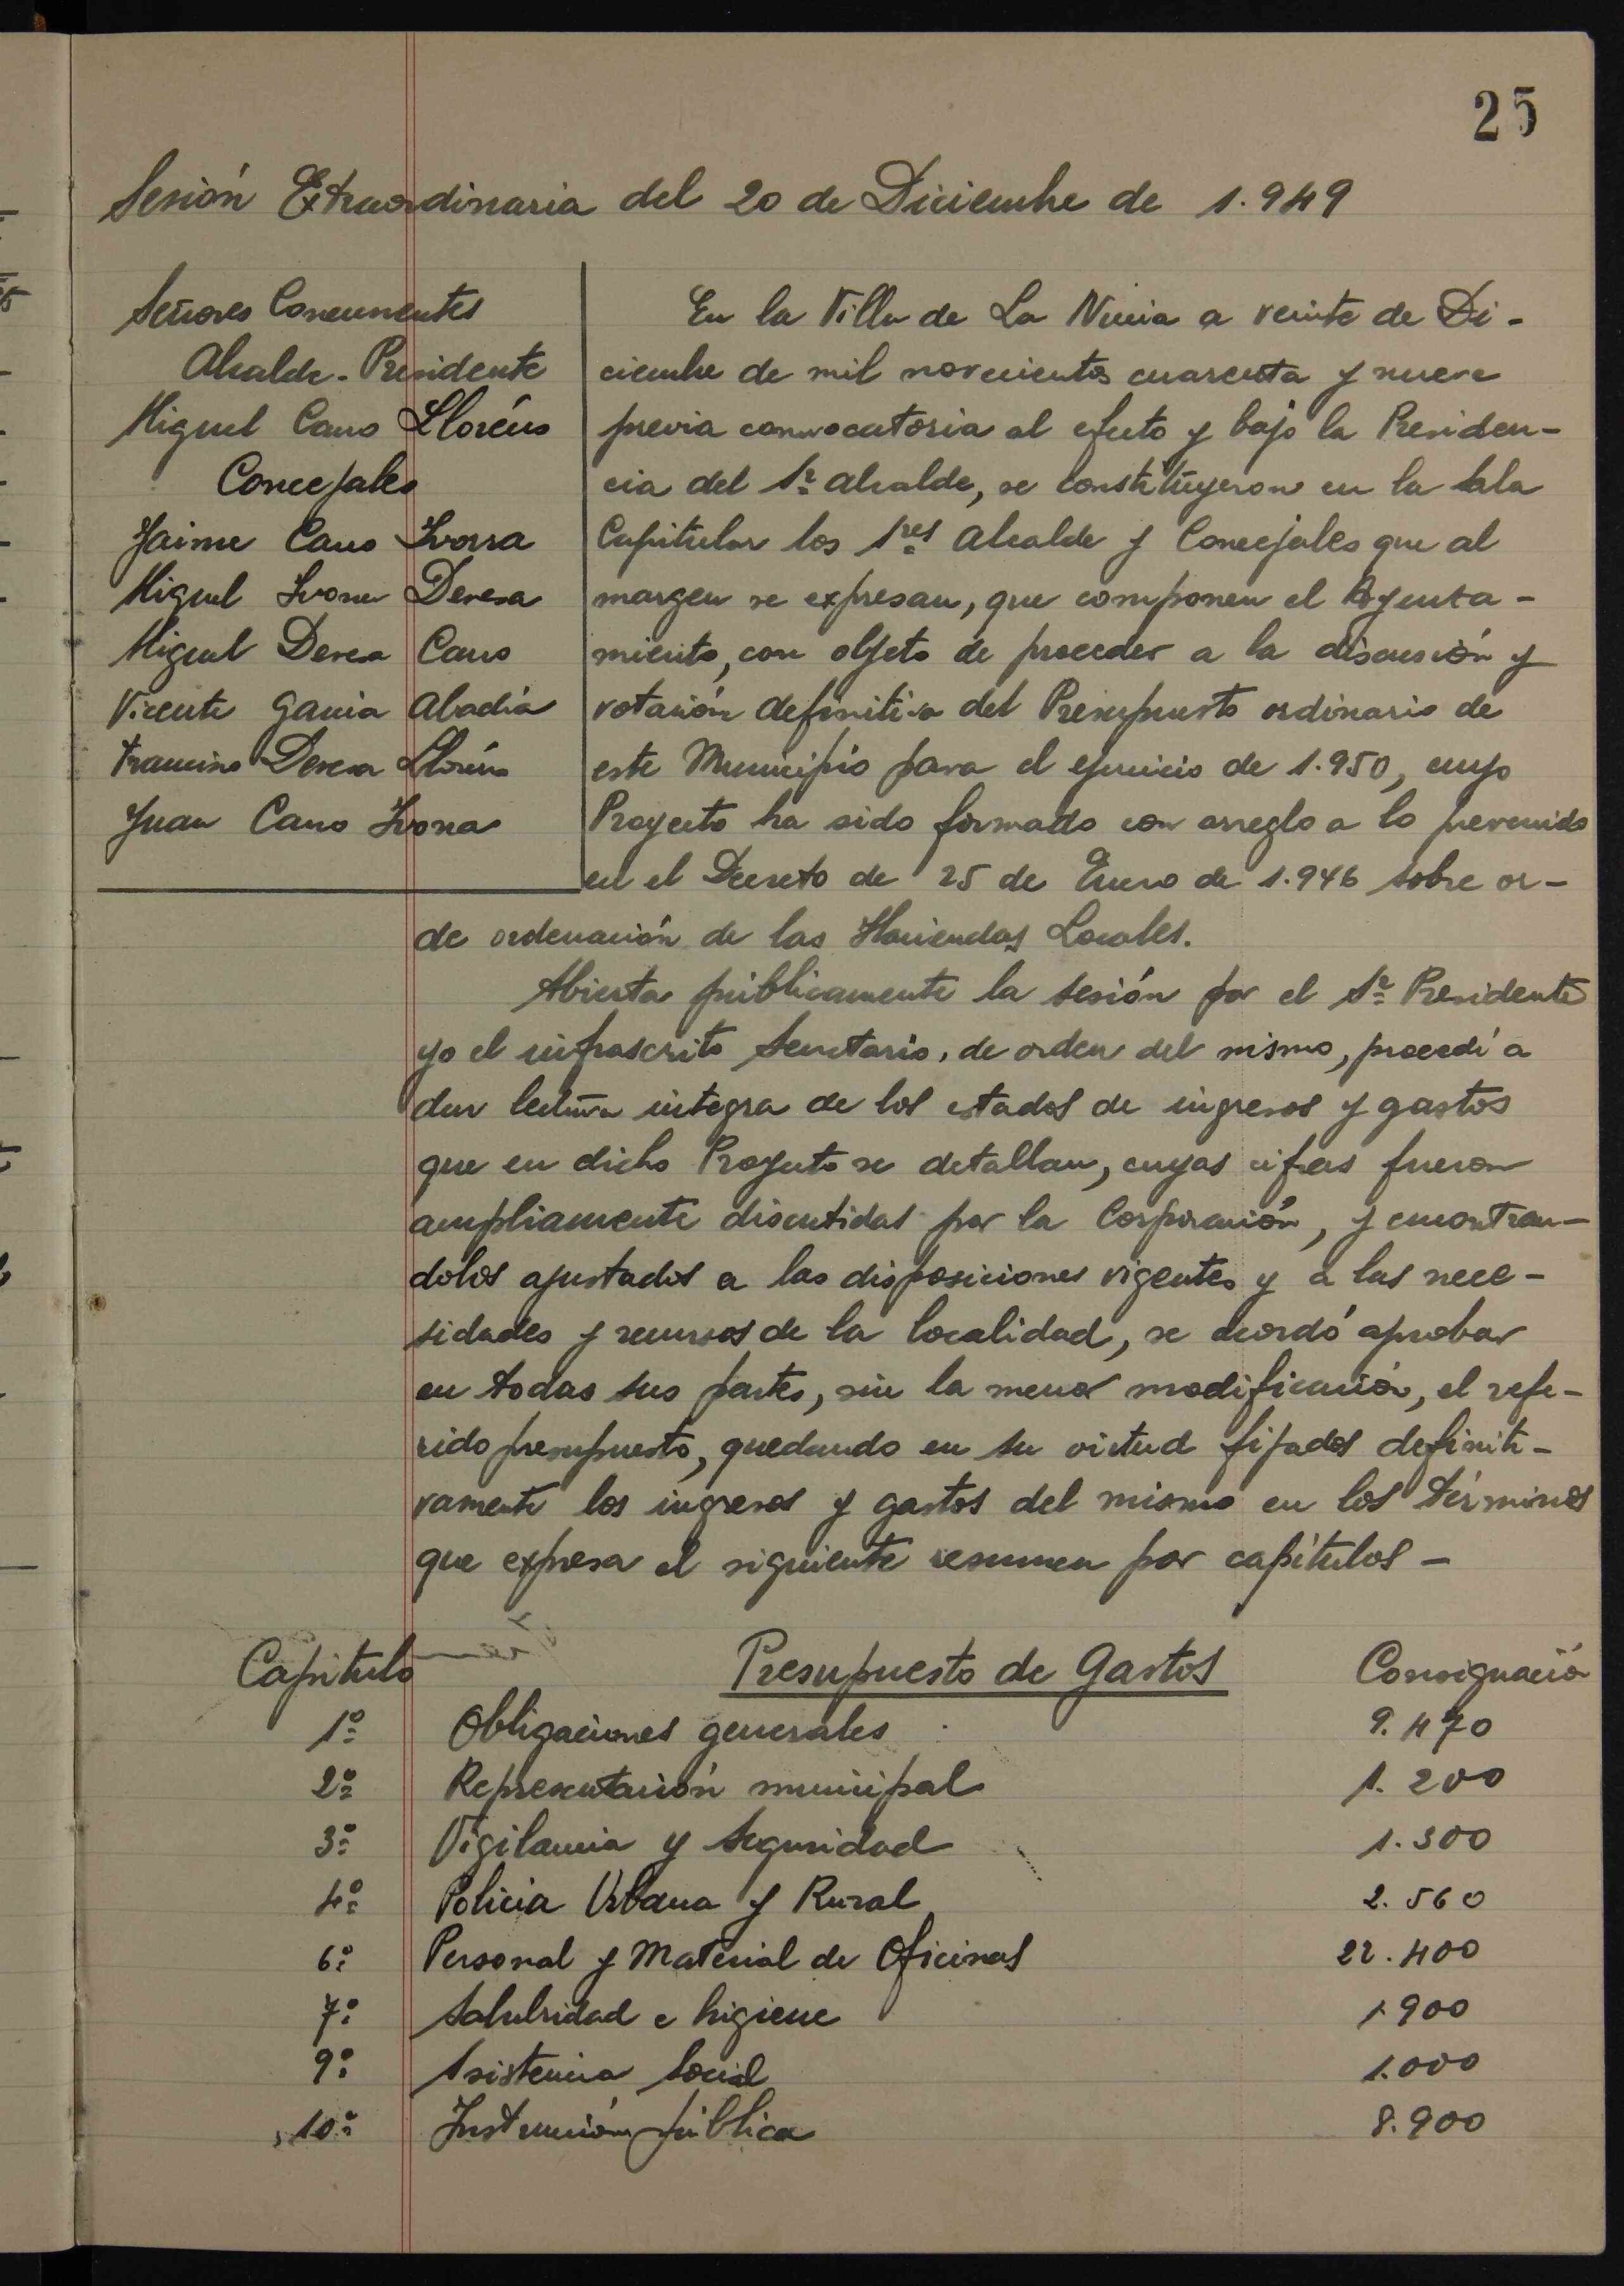 25
Sesión Extraordinaria del 20 de Diciembre de 1.949
Señores Concurrentes
Alcalde-Presidente
Miguel Cano Lloréns
Concejales
Jaime Cano Ivorra
Miguel Ivorra Devesa
Miguel Devesa Cano
Vicente Garcia Abadía
Francisco Devesa Lloréns
Juan Cano Ivorra
En la Villa de La Nucia a veinte de Di-
ciembre de mil novecientos cuarenta y nueve
previa convocatoria al efecto y bajo la Presiden-
cia del Sr. Alcalde, se constituyeron en la Sala
Capitular los Sres Alcalde y Concejales que al
margen se expresan, que componen el Ayunta-
miento, con objeto de proceder a la discusión y
votación definitiva del Presupuesto ordinario de
este Municipio para el ejercicio de 1.950, cuyo
Proyecto ha sido formado con arreglo a lo prevenido
en el Decreto de 25 de Enero de 1.946 sobre or-
de ordenación de las Haciendas Locales.
Abierta públicamente la sesión por el Sr. Presidente
yo el infrascrito Secretario, de orden del mismo, procedí a
dar lectura integra de los estados de ingresos y gastos
que en dicho Proyecto se detallan, cuyas cifras fueron
ampliamente discutidas por la Corporación, y encontran-
dolos ajustados a las disposiciones vigentes y a las nece-
sidades y recursos de la localidad, se acordó aprobar
en todas sus partes, sin la menor modificación, el refe-
rido presupuesto, quedando en su virtud fijados definiti-
vamente los ingresos y gastos del mismo en los términos
que expresa el siguiente resumen por capítulos -
Capitulo Presupuesto de Gastos Consignació
1º Obligaciones generales 9.470
2º Representación municipal 1.200
3º Vigilancia y Seguridad 1.300
4º Policia Urbana y Rural 2.560
6º Personal y Material de Oficinas 22.400
7º Salubridad e higiene 1.900
9º Asistencia Social 1.000
10º Instrucción pública 8.900